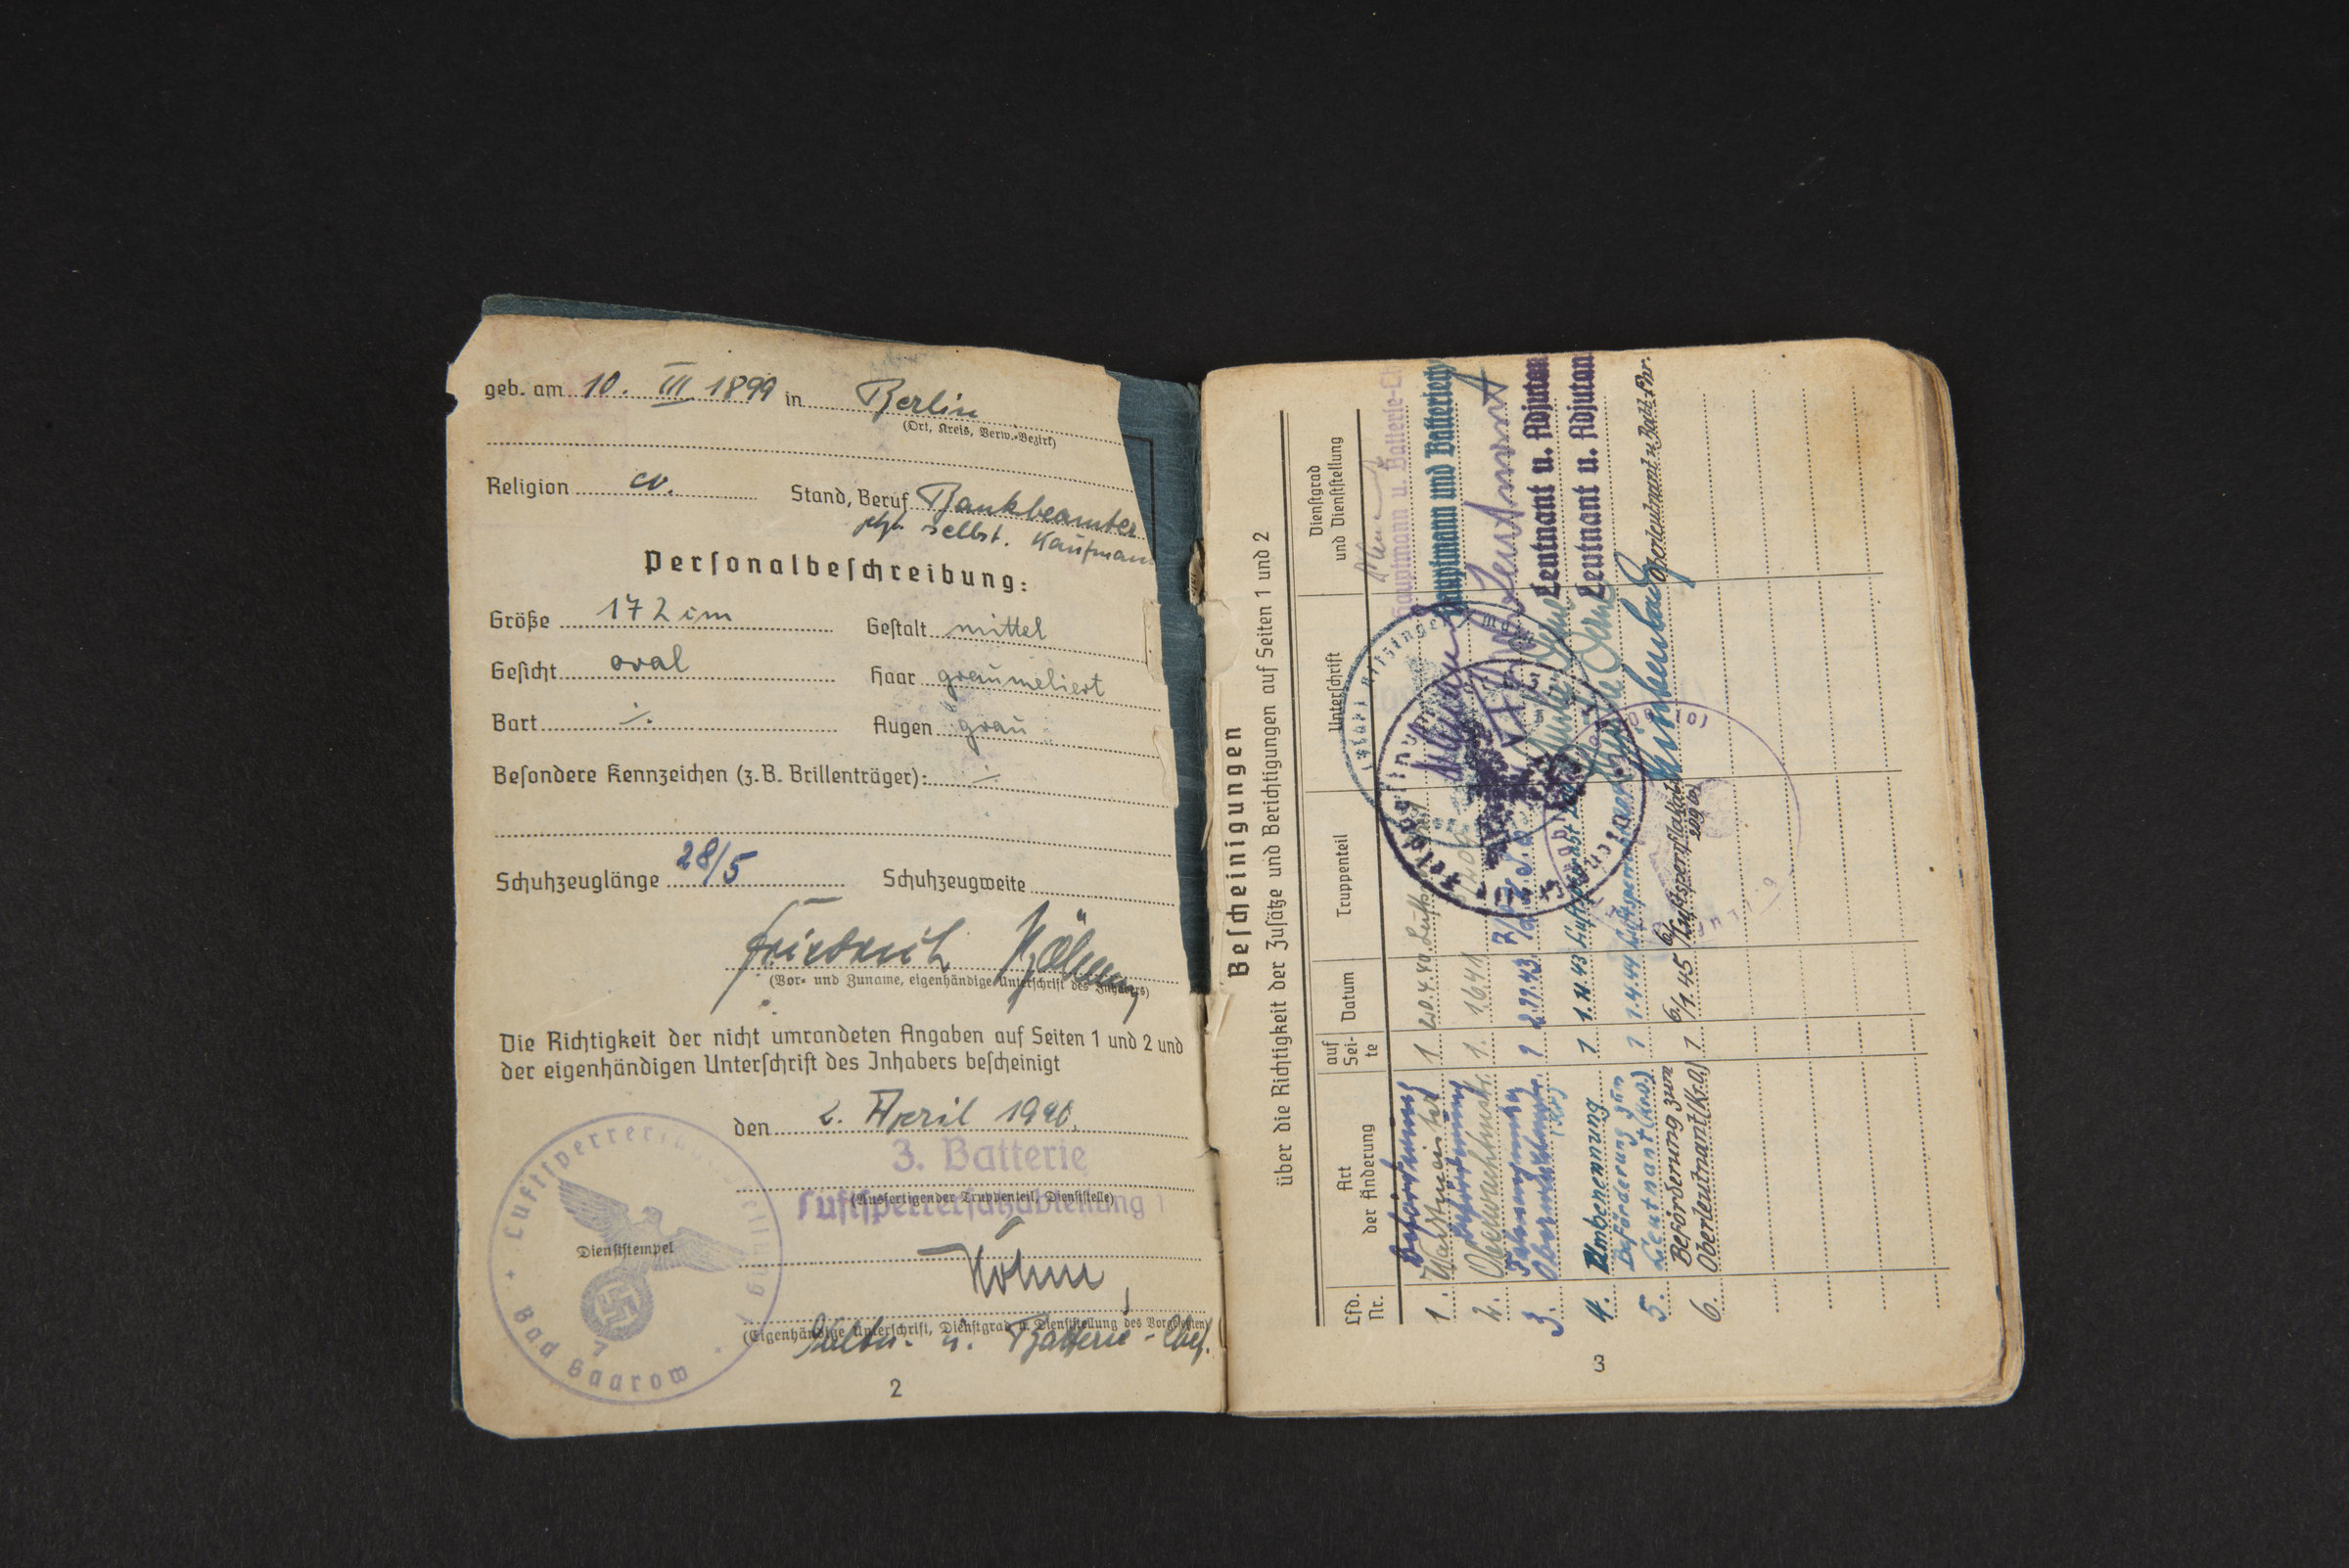 geb. am 10. III 1899 in Berlin
(Ort, Kreis, Verw.-Bezirk)
Religion ev. Stand, Beruf Bankbeamter
jetzt selbst. Kaufmann
Personalbeschreibung:
Größe 172 cm Gestalt mittel
Gesicht oval Haar graumeliert
Bart ⁒ Augen grau
Besondere Kennzeichen (z.B. Brillenträger): ⁒
Schuhzeuglänge 28/5 Schuhzeugweite
Friedrich
(Vor- und Zuname, eigenhändige Unterschrift des Inhabers)
Die Richtigkeit der nicht umrandeten Angaben auf Seiten 1 und 2 und
der eigenhändigen Unterschrift des Inhabers bescheinigt
den 2. April 1940.
3. Batterie
(Ausfertigender Truppenteil, Dienststelle)
Luftsperrersatzabteilung 1
Dienststempel
(Eigenhändige Unterschrift, Dienstgrad u. Dienststellung des Vorgesetzten)
u. Batterie-Chef.
Luftsperrersatzabteilung 1
Bad Saarow
2
Bescheinigungen
über die Richtigkeit der Zusätze und Berichtigungen auf Seiten 1 und 2
Lfd. Nr. Art der Änderung auf Seite Datum Truppenteil Unterschrift Dienstgrad und Dienststellung
1. Beförderung Wachtmeister 1 20.4.40 Hauptmann u. Batterie-Ch
2. Beförderung Oberwachtmstr. 1. 1.6.41 Hauptmann und Batteriech
3. 1 2.11.43 Leutnant
4. Umbenennung 1 1.11.43 Leutnant u. Adjutan
5. Beförderung zum Leutnant (Kr.O.) 1 1.4.44 Leutnant u. Adjutan
6. Beförderung zum Oberleutnant (Kr.O) 1 6/1.45 Oberleutnant u. Battr.Fhr.
3